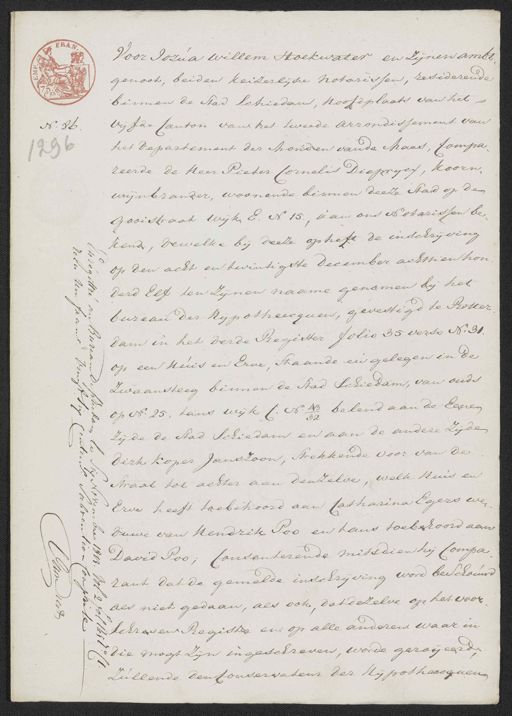 EMP. FRAN.
75
N. 86.
1296
Voor Jozúa Willem Hoekwater en Zijnen ambt,
genoot, beiden keizerlijke Notarissen, resideerende
binnen de Stad Schiedam, Hoofdplaats van het
vijfde Canton van het tweede arrondissement van
het departement der Monden vande Maas, Compa,
reerde de Heer Pieter Cornelis Koorn,
wijnbrander, woonende binnen deeze Stad op de
Gooistraat wijk E. No 15, aan ons Notarissen be,
kend, dewelke bij deeze opheft de inschrijving
op den acht en twintigste December achttien hon,
derd Elf ten Zijnen naame genomen bij het
bureau der Hypotheecquen, gevestigd te Rotter,
dam in het derde Register folio 35 verso No 31.
op een Húis en Erve, Staande en gelegen in de
Zwaansteeg binnen de Stad Schiedam, van ouds
op No 25, thans wijk C. No belend aan de Eene
Zijde de Stad Schiedam en aan de andere Zijde
Dirk Koper Janszoon, Strekkende voor van de
Straat tot achter aan denzelve, welk Huis en
Erve heeft toebehoord aan Catharina Egers we,
duwe van Hendrik Poo en thans toebehoord aan
David Poo; Consenterende mitsdien hij Compa,
rant dat de gemelde inschrijving word beschouwd
als niet gedaan, als ook, dat dezelve op het voor,
schreven Registre en op alle anderen waar in
die mogt Zijn ingeschreven, worde geroijeerd,
Zúllende den Conservateur der Hypotheecquen